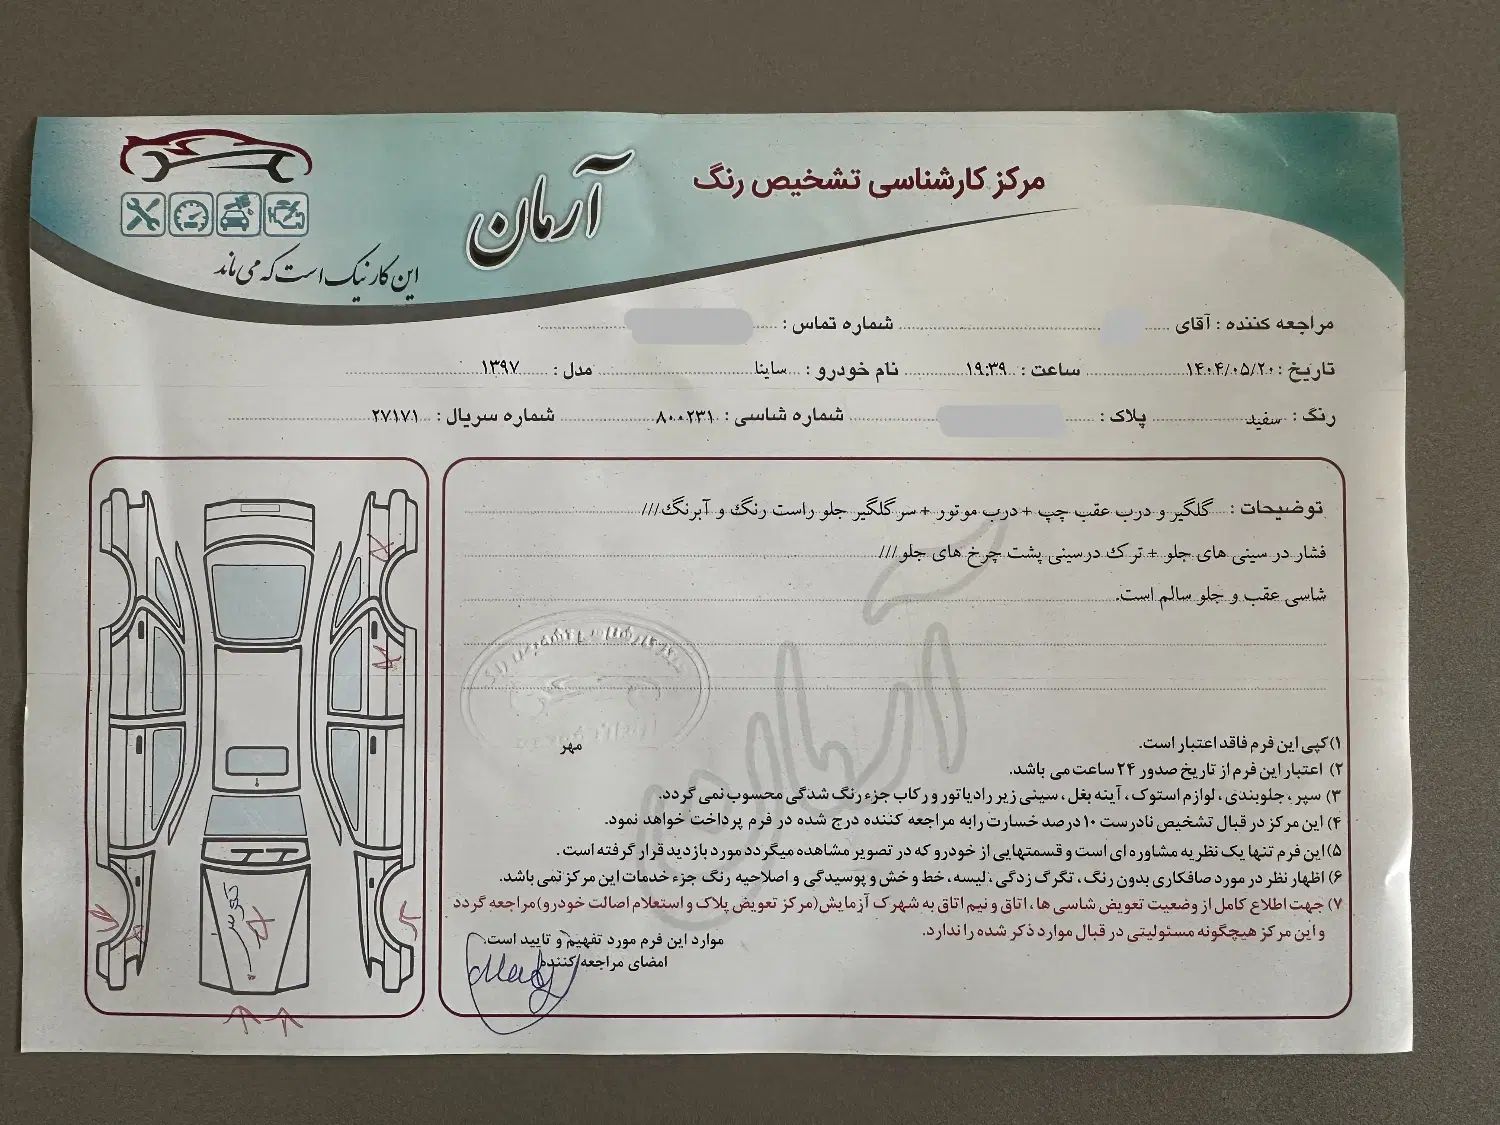 مرکز کارشناسی تشخیص رنگ
آرمان
این کار نیک است که می ماند
مراجعه کننده : آقای شماره تماس :
تاریخ : ۱۴۰۴/۰۵/۲۰ ساعت : ۱۹:۳۹ نام خودرو : ساینا مدل : ۱۳۹۷
رنگ : سفید پلاک : شماره شاسی : ۸۰۰۲۳۱ شماره سریال : ۲۷۱۷۱
توضیحات : گلگیر و درب عقب چپ + درب موتور + سر گلگیر جلو راست رنگ و آبرنگ///
فشار در سینی های جلو + ترک درسینی پشت چرخ های جلو///
شاسی عقب و جلو سالم است.
مهر
۱)کپی این فرم فاقد اعتبار است.
۲) اعتبار این فرم از تاریخ صدور ۲۴ ساعت می باشد.
۳) سپر ، جلوبندی ، لوازم استوک ، آینه بغل ، سینی زیر رادیاتور و رکاب جزء رنگ شدگی محسوب نمی گردد.
۴) این مرکز در قبال تشخیص نادرست ۱۰ درصد خسارت رابه مراجعه کننده درج شده در فرم پرداخت خواهد نمود.
۵)این فرم تنها یک نظریه مشاوره ای است و قسمتهایی از خودرو که در تصویر مشاهده میگردد مورد بازدید قرار گرفته است .
۶) اظهار نظر در مورد صافکاری بدون رنگ ، تگرگ زدگی ، لیسه ، خط و خش و پوسیدگی و اصلاحیه رنگ جزء خدمات این مرکز نمی باشد.
۷) جهت اطلاع کامل از وضعیت تعویض شاسی ها ، اتاق و نیم اتاق به شهرک آزمایش(مرکز تعویض پلاک و استعلام اصالت خودرو)مراجعه گردد
و این مرکز هیچگونه مسئولیتی در قبال موارد ذکر شده را ندارد.
موارد این فرم مورد تفهیم و تایید است.
امضای مراجعه کننده